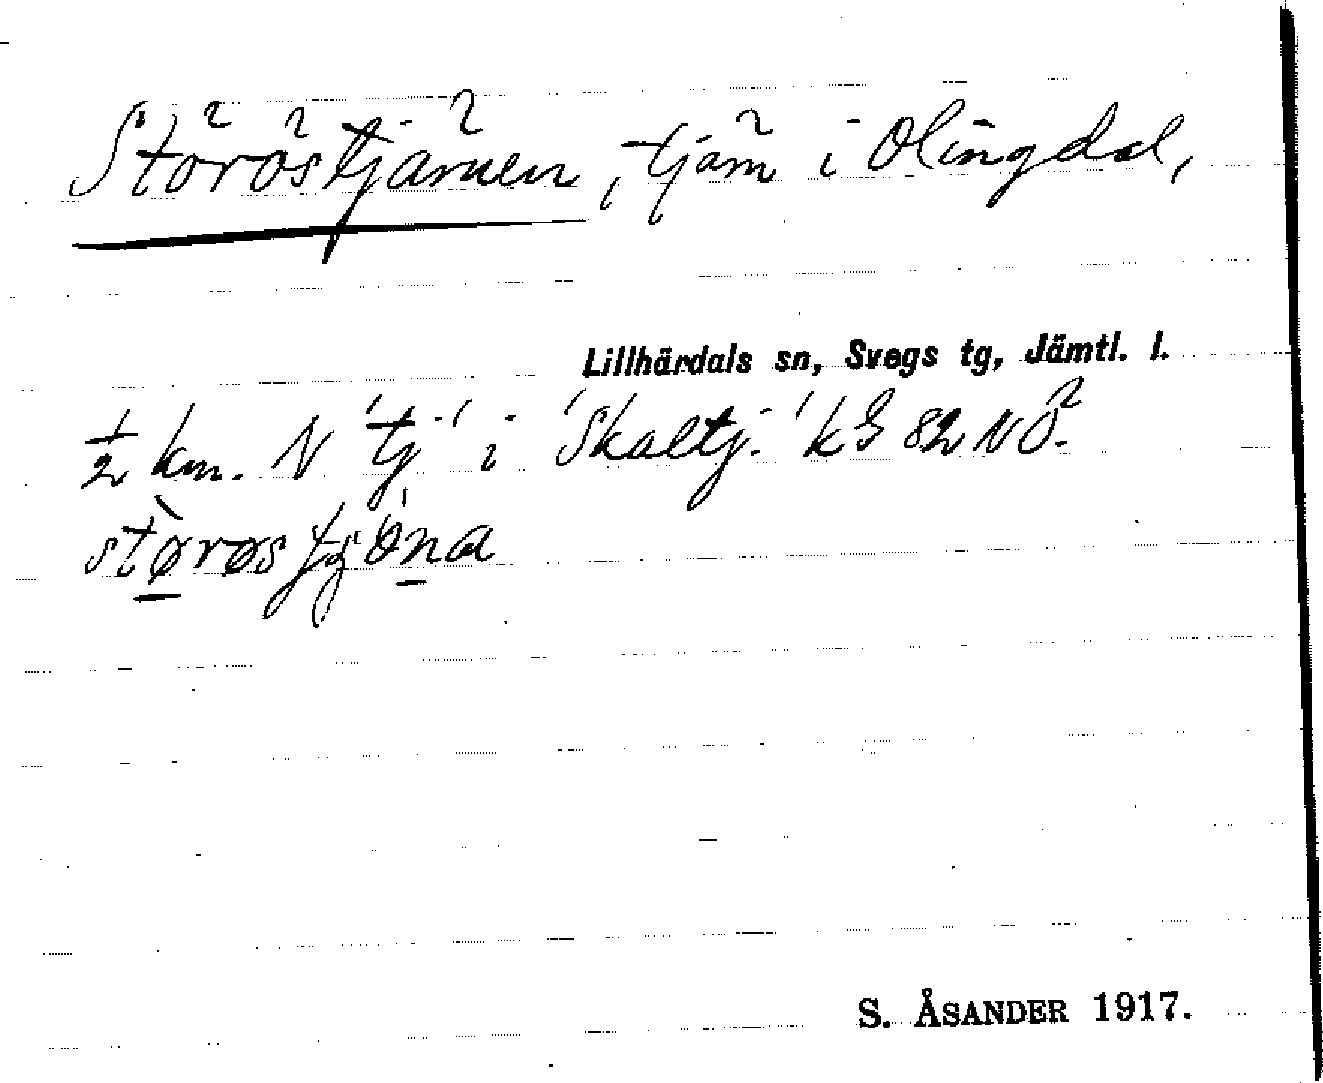 Störöstjärnen, tjärn i Olingdal,
Lillhärdals sn, Svegs tg, Jämtl. l.
½ km. N 'tj.' i 'Skaltj.' kB 82 NÖ.
størøs ţʃöna
S. ÅSANDER 1917.